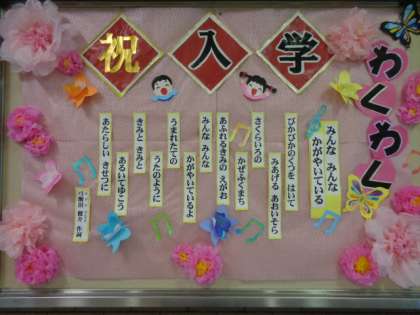 祝入学
わくわく
みんな みんな
かがやいている
ぴかぴかのくつを はいて
みあげる あおいそら
さくらいろの
かぜふくまち
あふれるきみの えがお
みんな みんな
かがやいているよ
うまれたての
うたのように
きみと きみと
あるいてゆこう
あたらしい きせつに
弓削田 健介 作詞